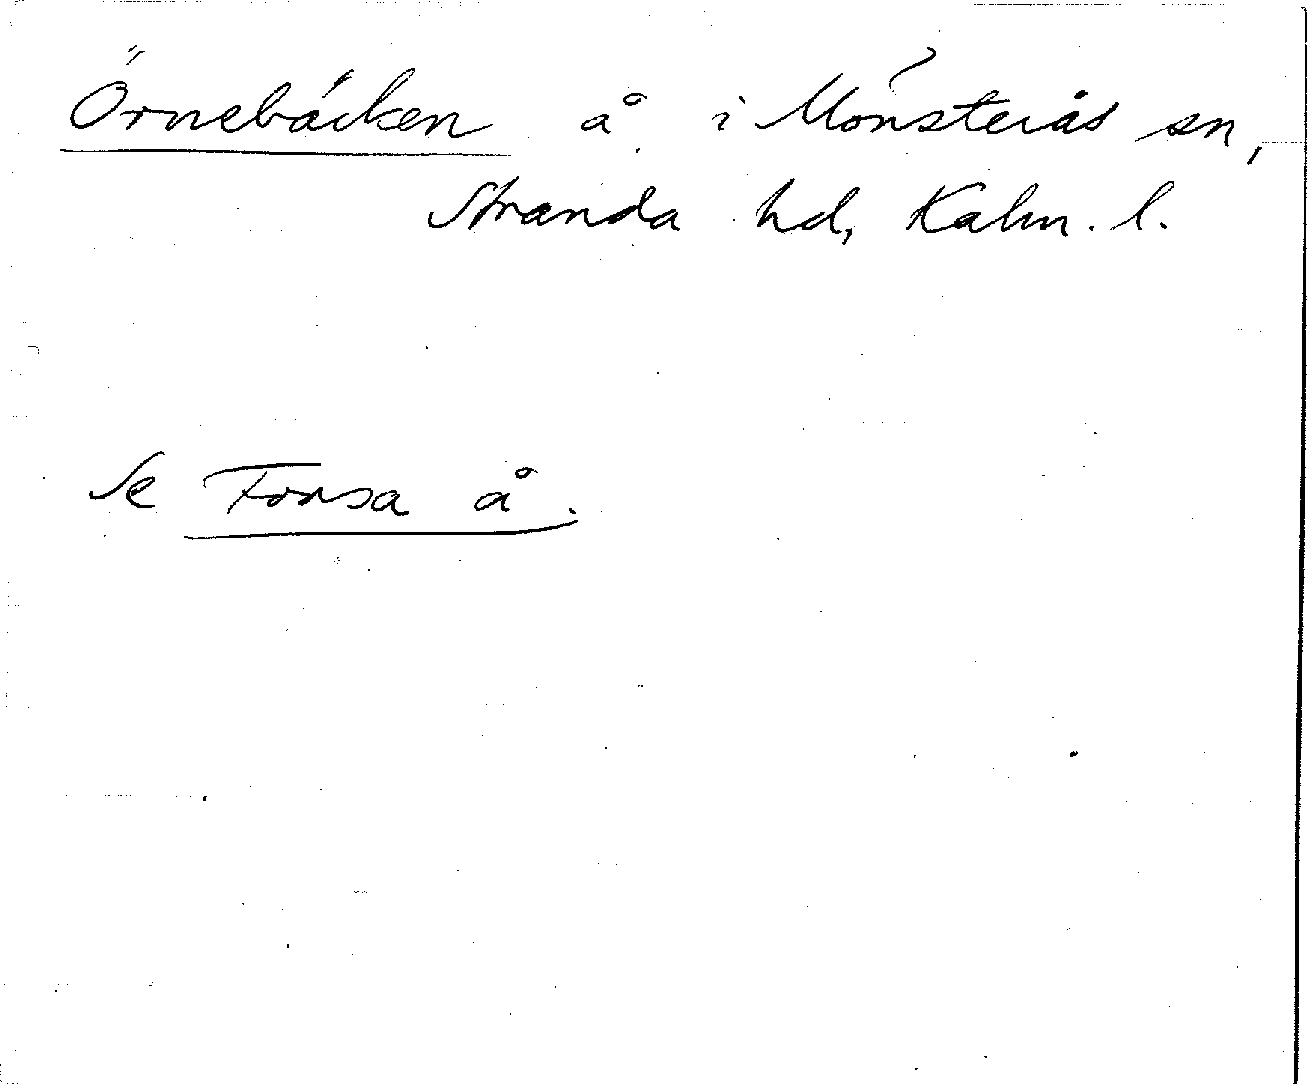 Örnebäcken å i Mönsterås sn,
Stranda hd, Kalm. l.
Se Forsa å.